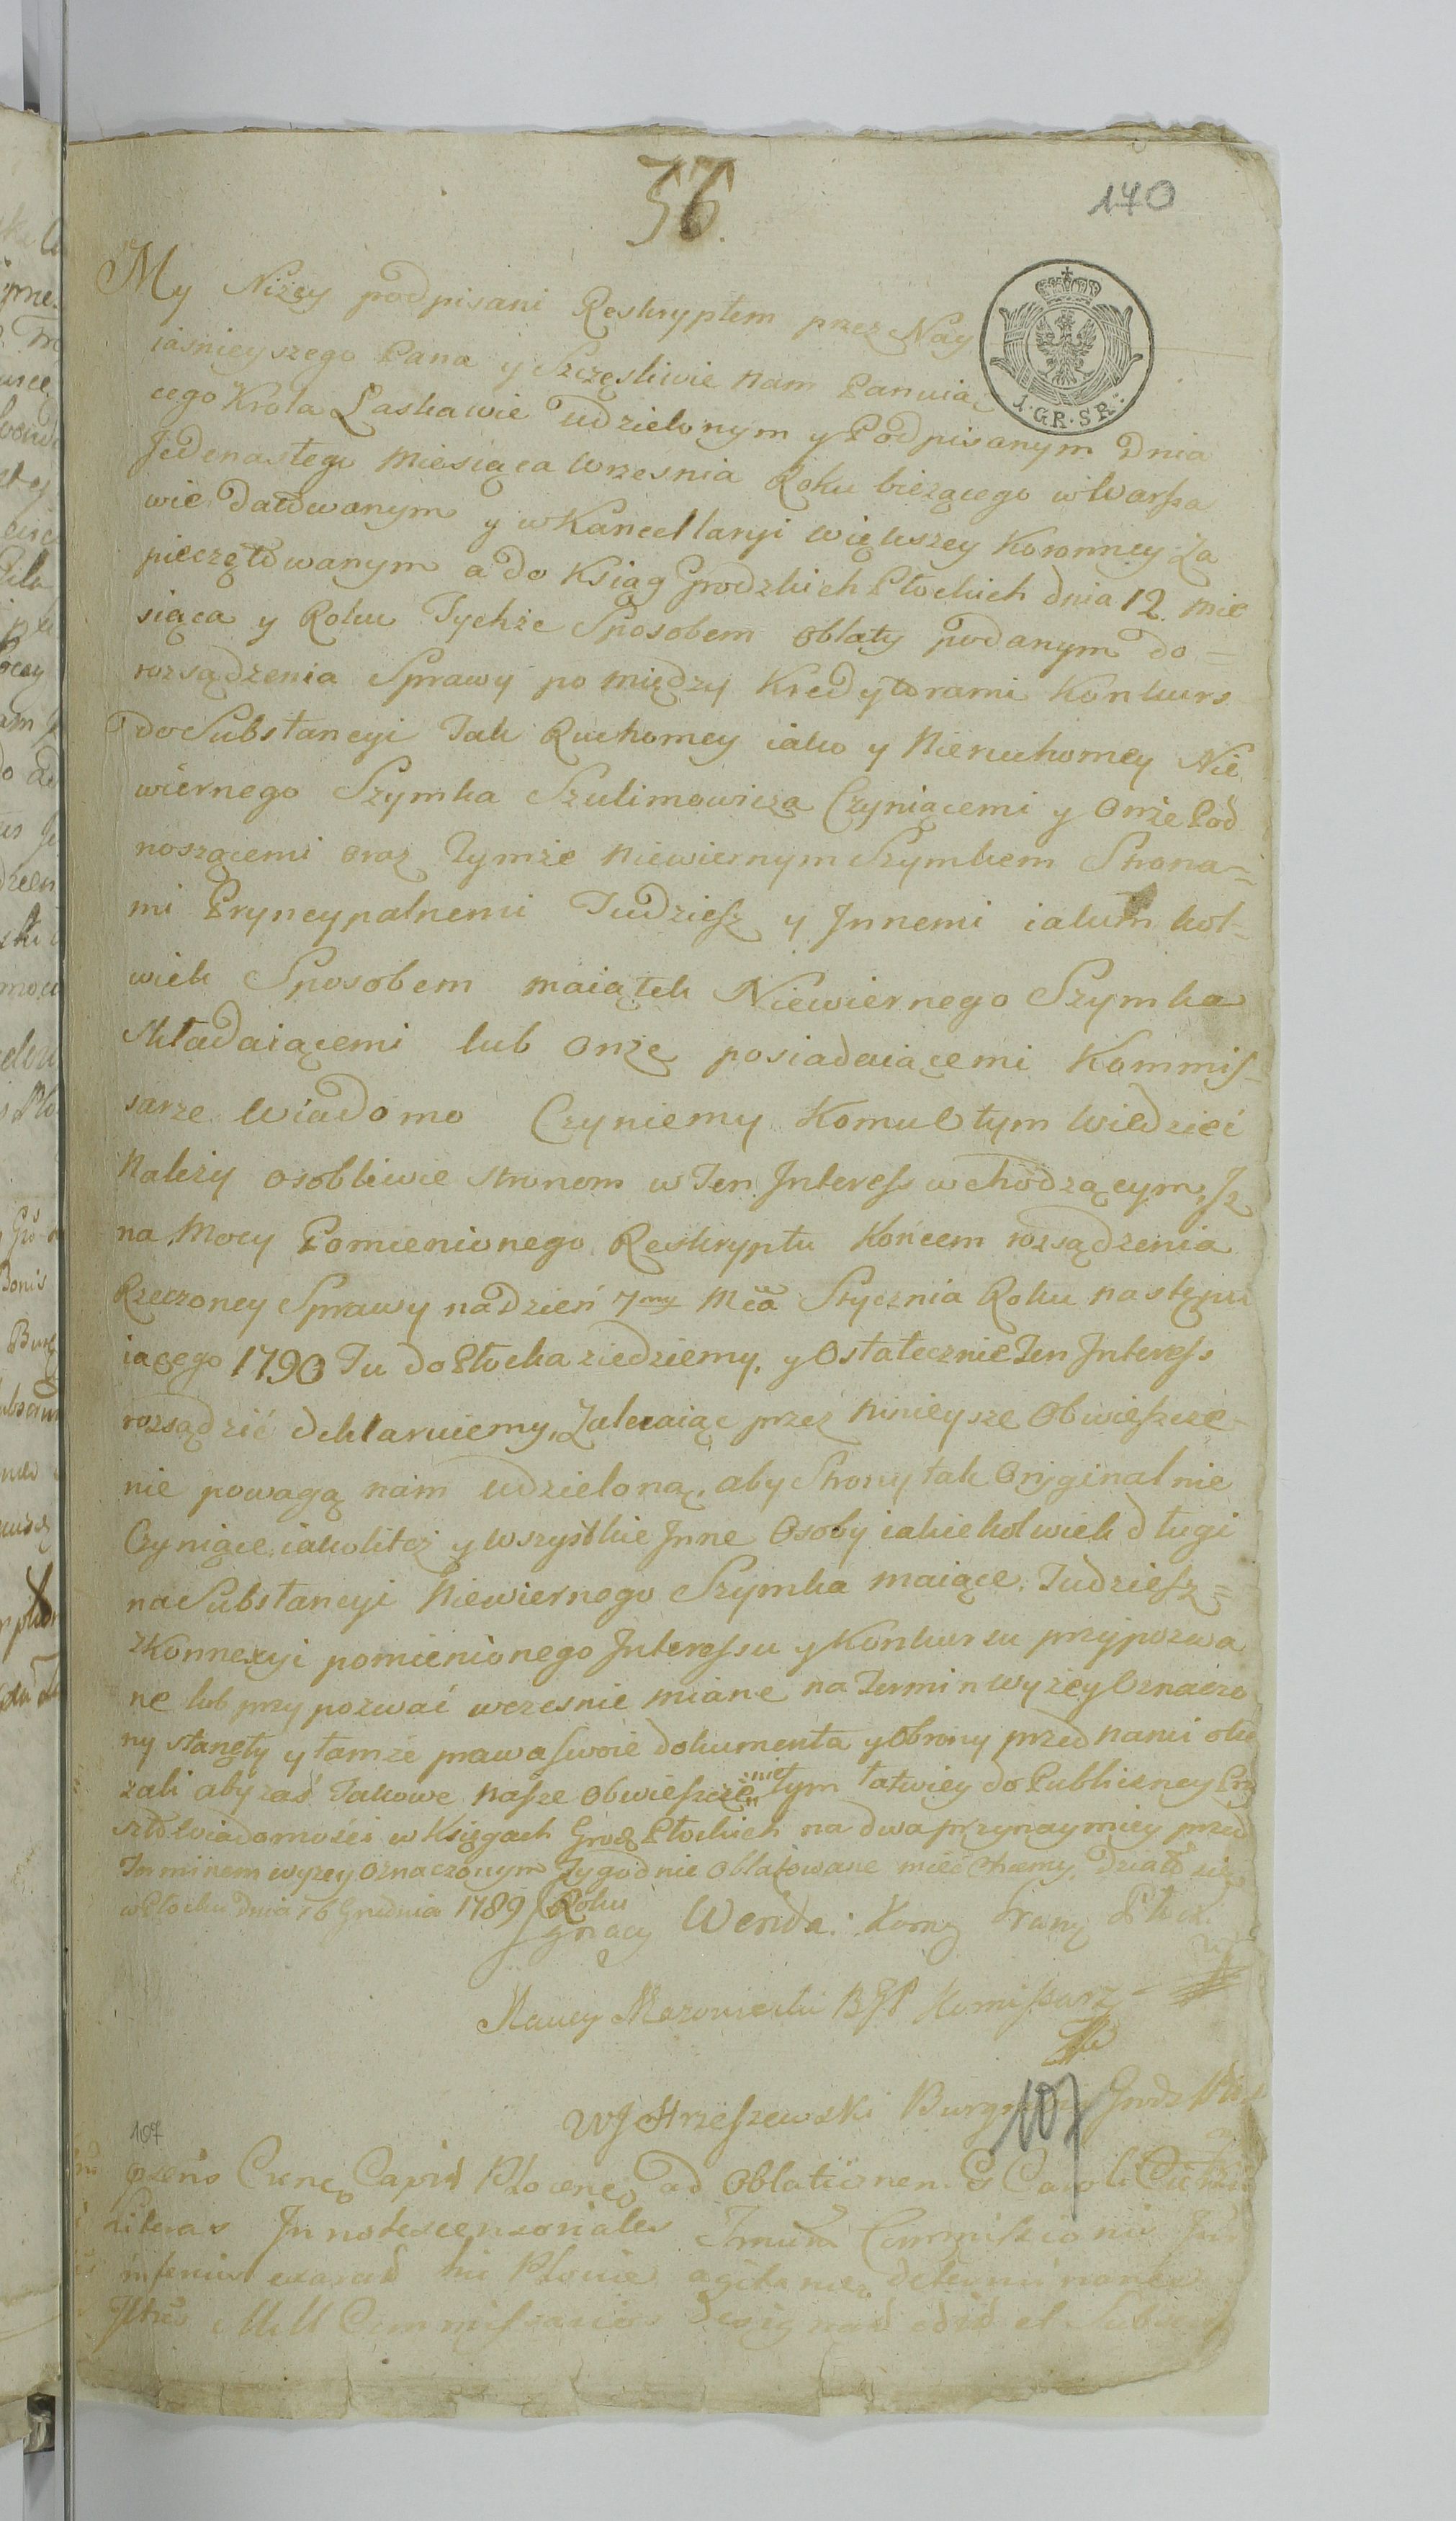 36.
140
1. GR. SR.
My Niżey podpisani Reskryptem przez Nay
iaśnieyszego Pana y Szczęsliwie nam Panuią
cego Krola Łaskawie Udzielonym y Podpisanym Dnia
Jedenastego Miesiąca Wrzesnia Roku bieżącego w Warsza
wie datowanym y w Kancellaryi Większey Koronney Za
pieczętowanym a do Ksiąg Grodzkich Płockich dnia 12. Mie
siąca y Roku Tychże Sposobem oblaty podanym do =
rozsądzenia Sprawy po między Kredytorami Konkurs
do Substancyi Tak Ruchomey iako y Nieruchomey Nie
wiernego Szymka Szulimowicza Czyniącemi y Onże Pod
noszącemi oraz Tymże Niewiernym Szymkiem Strona=
mi Pryncypalnemi Tudziesz y Innemi iakim kol-
wiek Sposobem maiątek Niewiernego Szymka
Składaiącemi lub onże posiadaiącemi Kommis-
sarze Wiadomo Czyniemy Komu O tym Wiedzieć
Należy osobliwie stronom w Ten Interess wchodzącym, Jż
na Mocy Pomienionego Reskryptu Końcem rozsądzenia
Rzeczoney Sprawy na Dzień 7my Mca Stycznia Roku następu
iącego 1790 Tu do Płocka ziedziemy, y Ostatecznie Ten Interess
rozsądzić deklaruiemy, Zalecaiąc przez Ninieysze Obwieszcze-
nie powagą nam Udzieloną, aby Strony tak Oryginalnie
Czyniące, iako litez y Wszystkie Jnne Osoby iakiekolwiek długi
na Substancyi Niewiernego Szymka maiące, Tudziesz =
z Konnexyi pomienionego Interessu y Konkursu przypozwa
ne lub przypozwać wczesnie miane na Termin Wyżey Oznaczo
ny stanęły y tamże prawa swoie dokumenta y Obrony przed nami oka
zali aby zaś Takowe Nasze Obwieszczenie tym łatwiey do Publiczney Prz
szło Wiadomości w Księgach Grodz Płockich na dwa przynaymniey przed
Terminem wyżey oznaczonym Tygodnie Oblatowane mieć chcemy. Działo się
w Płocku Dnia 16 Grudnia 1789 Roku
Ignacy Wenda
Mazowiecki BGP Komissarz
107
107
ad Oblationem
Literas Innotescensoriales Commissionis
MM Commissarios